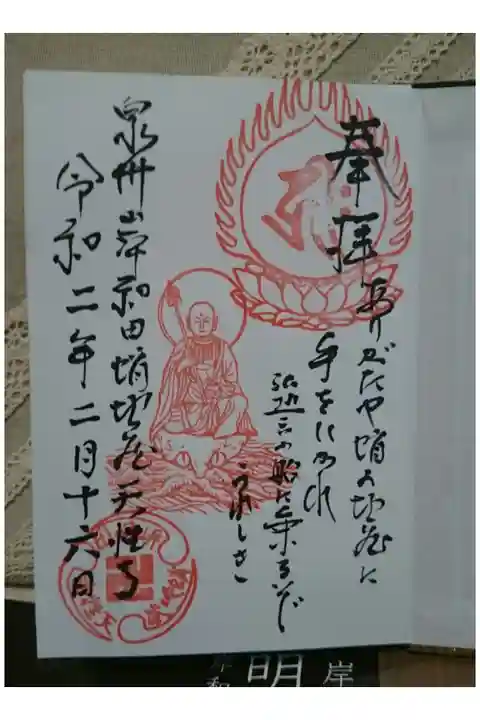 奉拝
ありがたや蛸の地蔵に
手をひかれ
弘誓の船に乗るぞ
うれしき
泉州岸和田蛸地蔵天性寺
令和二年二月十六日
岸和
明
岸